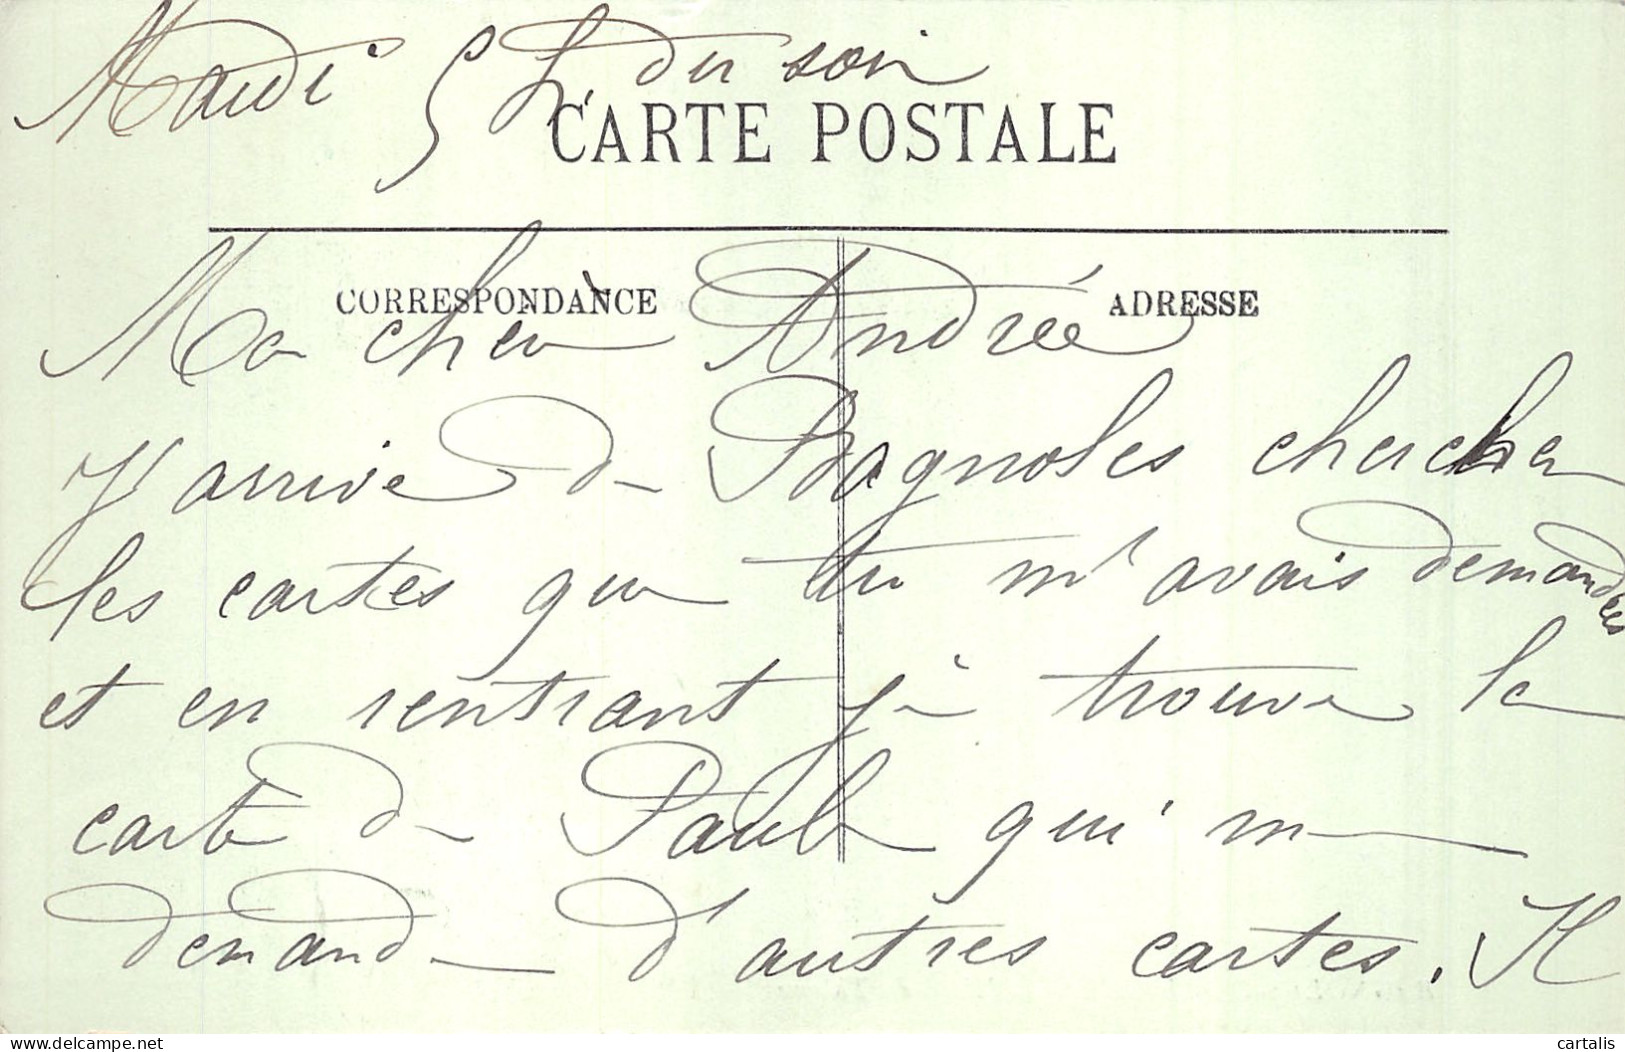 Mardi 5 h du soir
CARTE POSTALE
CORRESPONDANCE
ADRESSE
Ma chère Andrée
J'arrive de Bagnoles chercher
les cartes que tu m'avais demandées
et en rentrant je trouve la
carte de Paul qui me
demande d'autres cartes. Il
delcampe.net
cartalis